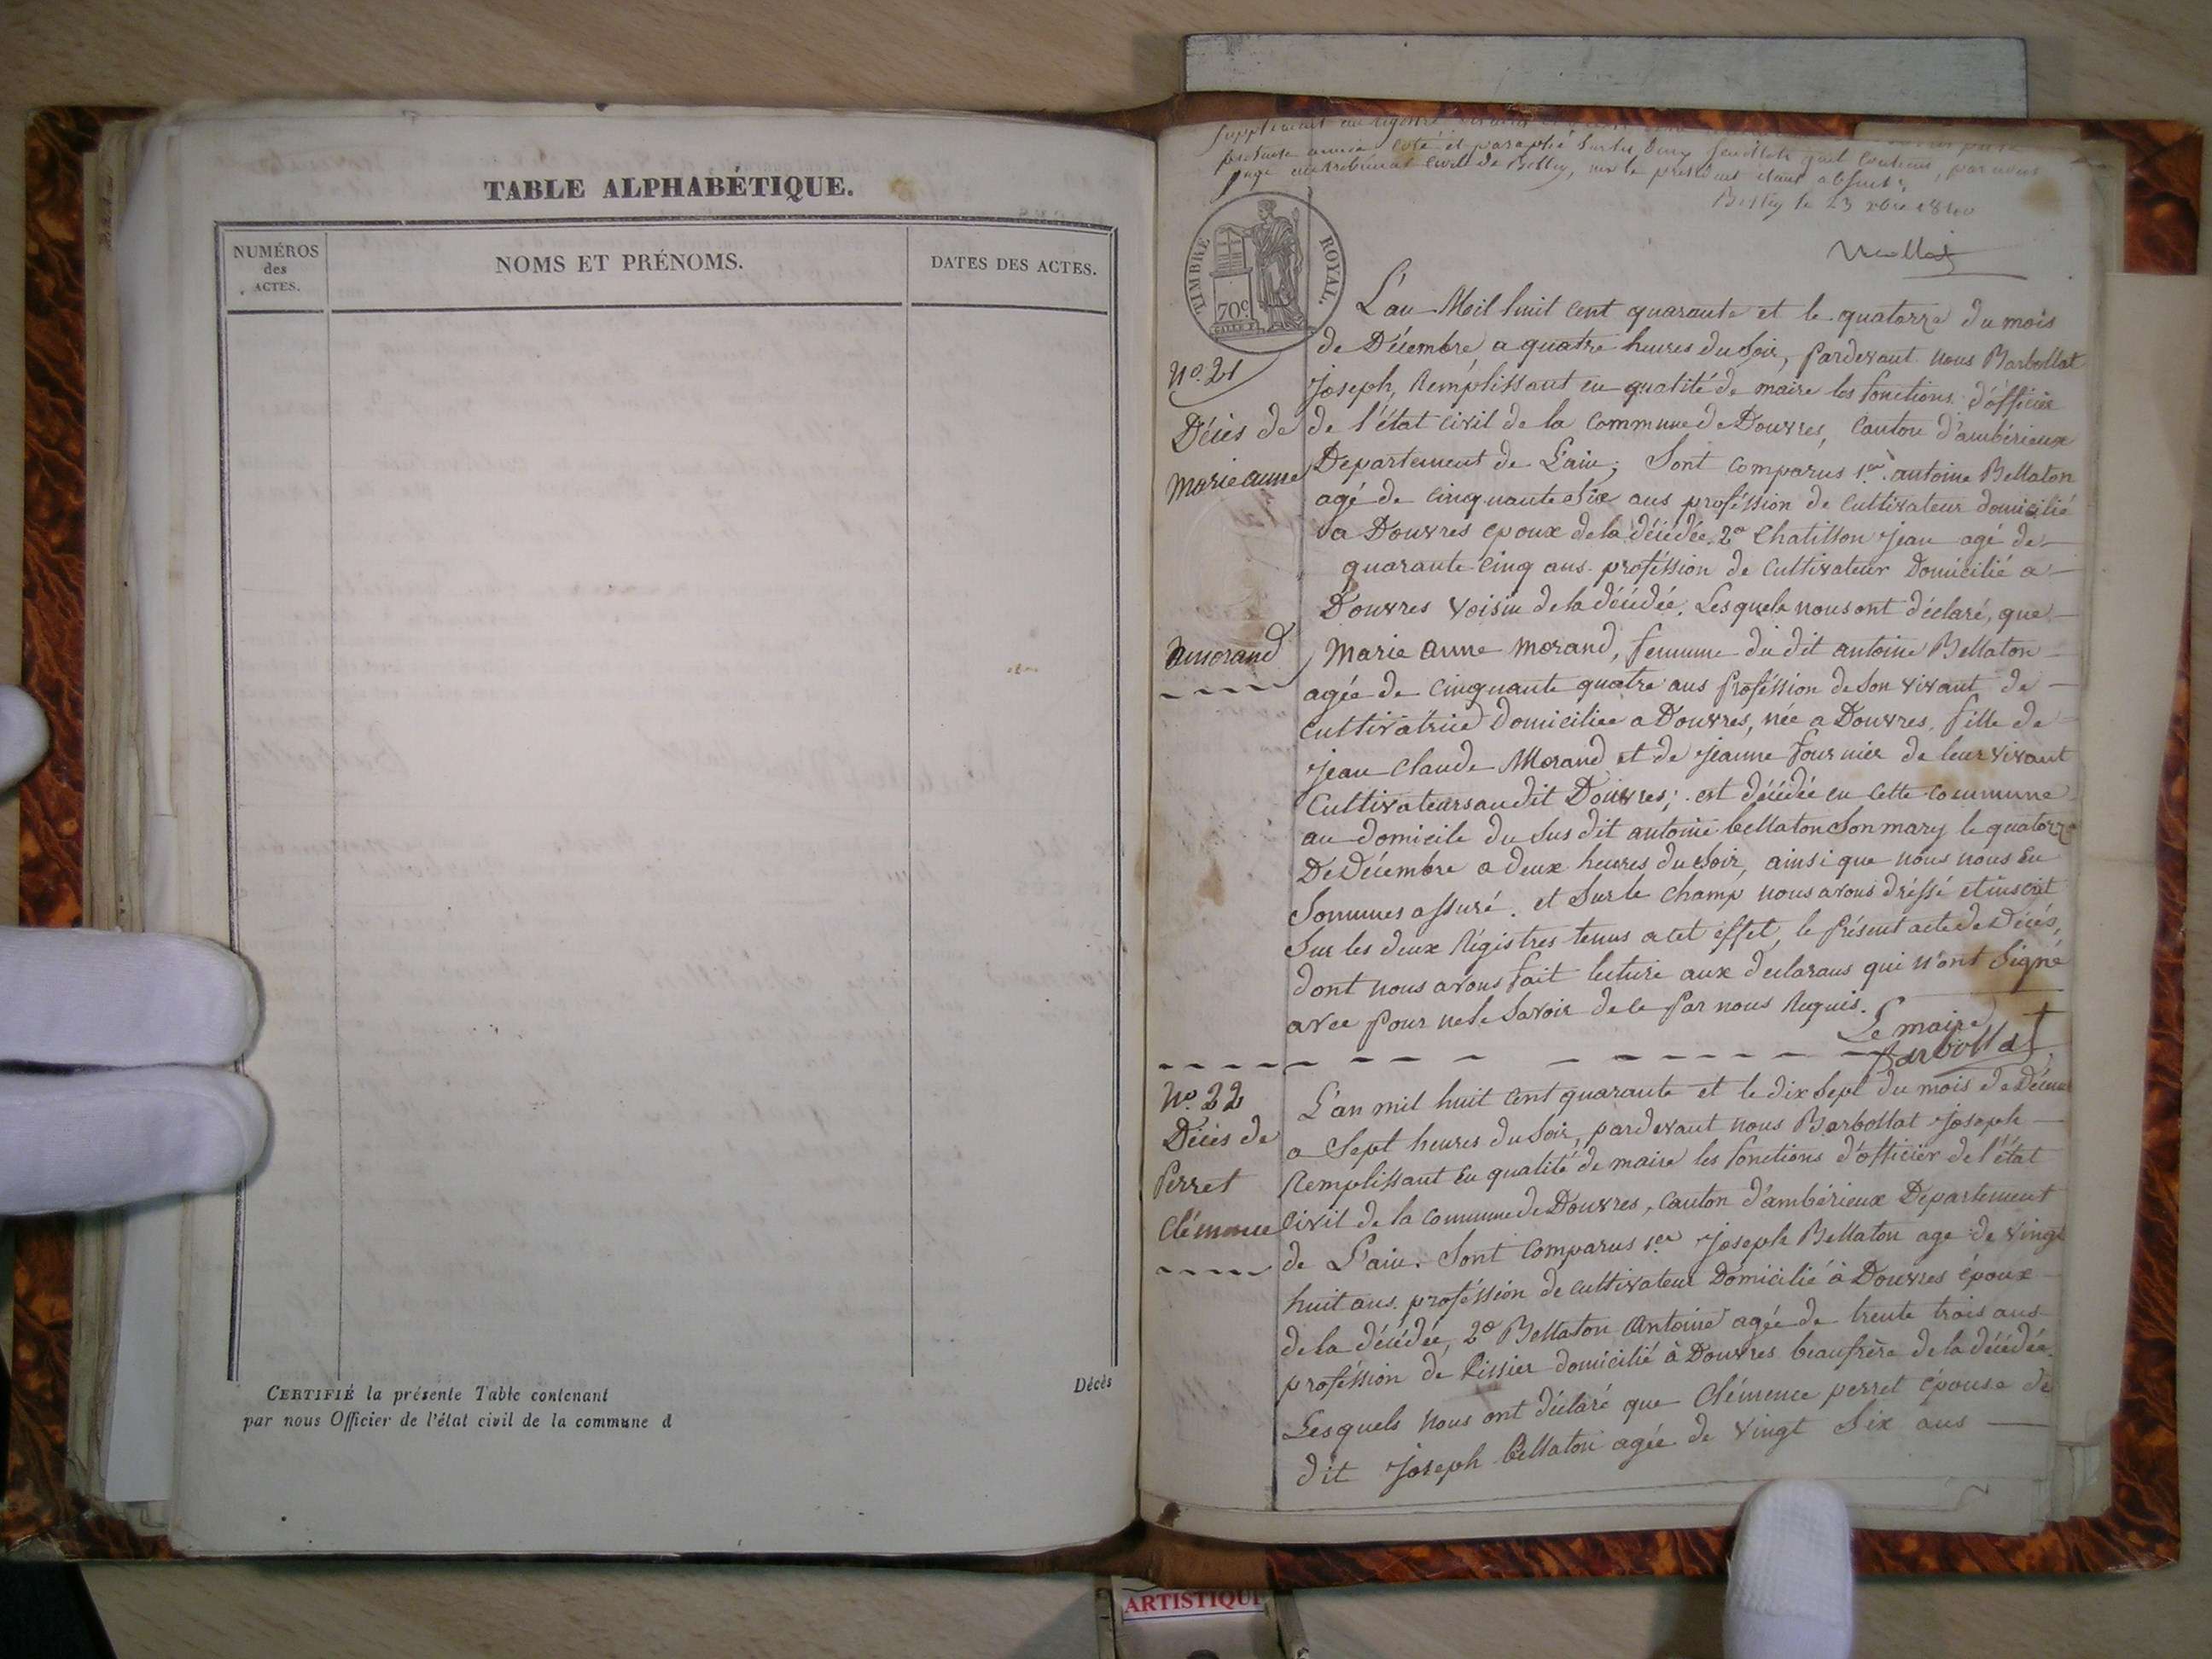 TABLE ALPHABÉTIQUE.
NUMÉROS
des
ACTES.
NOMS ET PRÉNOMS.
DATES DES ACTES.
CERTIFIÉ la présente Table contenant
par nous Officier de l'état civil de la commune d
Décès
Supplément au registre
présente année coté et paraphé sur les deux feuillets qu'il contient, par nous
juge au tribunal civil de Belley, le président étant absent,
Belley le 23 xbre 1840
TIMBRE ROYAL.
70c
L'an Mil huit cent quarante et le quatorze du mois
de Décembre a quatre heures du Soir, pardevant nous Barbollat
No. 21
Joseph, Remplissant en qualité de maire les fonctions d'officier
Décès de
de l'état civil de la Commune de Douvres, Canton d'ambérieux
marie anne
Département de L'ain; Sont Comparus 1er antoine Bellaton
agé de Cinquante Six ans proféssion de Cultivateur domicilié
a Douvres epoux de la décédée. 2e Chatillon Jean agé de
quarante Cinq ans. proféssion de Cultivateur Domicilié a
Douvres voisin de la décédée. Lesquels nous ont déclaré, que
morand
Marie Anne Morand, femme du dit antoine Bellaton
agée de Cinquante quatre ans proféssion de son vivant de
Cultivatrice Domiciliée a Douvres, née a Douvres. fille de
Jean Claude Morand et de Jeanne fournier de leur vivant
Cultivateurs au dit Douvres; est décédée en Cette Commune
au domicile du Sus dit antoine bellaton Son mary le quatorze
De Décembre a deux heures du Soir, ainsi que nous nous En
Sommes assuré. et Sur le Champ nous avons dréssé et inscrit
Sur les deux Régistres tenus a cet éffet, le présent acte de Décés,
dont nous avons fait lecture aux declarans qui n'ont Signé
avec pour ne le Savoir de ce par nous Requis.
Le maire
Barbollat
No. 22
L'an mil huit Cent quarante et le dix Sept du mois de Décem
Décès de
a Sept heures du Soir, pardevant nous Barbollat Joseph
Perret
Remplissant En qualité de maire les fonctions d'officier de l'état
Clémence
Civil de la Commune de Douvres, Canton d'ambérieux Département
de L'ain. Sont Comparus 1er Joseph Bellaton age de vingt
huit ans. proféssion de cultivateur Domicilié à Douvres époux
de la décédée, 2e Bellaton Antoine agée de trente trois ans
proféssion de domicilié à Douvres beaufrère de la décédée.
Lesquels nous ont déclaré que Clémence perret épouse de
dit Joseph Bellaton agée de vingt Six ans
ARTISTIQUE